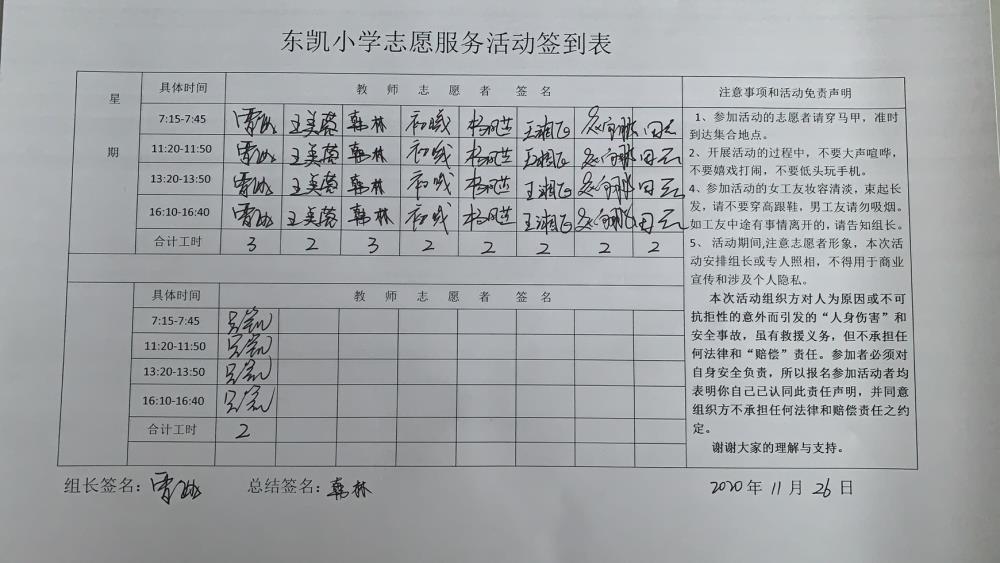 东凯小学志愿服务活动签到表
星期
具体时间 教师志愿者签名 注意事项和活动免责声明
7:15-7:45 王美蓉 韩林
11:20-11:50 王美蓉 韩林
13:20-13:50 王美蓉 韩林
16:10-16:40 王美蓉 韩林
合计工时 3 2 3 2 2 2 2 2
具体时间 教师志愿者签名
7:15-7:45
11:20-11:50
13:20-13:50
16:10-16:40
合计工时 2
1、参加活动的志愿者请穿马甲，准时
到达集合地点。
2、开展活动的过程中，不要大声喧哗，
不要嬉戏打闹，不要低头玩手机。
4、参加活动的女工友妆容清淡，束起长
发，请不要穿高跟鞋，男工友请勿吸烟。
如工友中途有事情离开的，请告知组长。
5、 活动期间,注意志愿者形象，本次活
动安排组长或专人照相，不得用于商业
宣传和涉及个人隐私。
本次活动组织方对人为原因或不可
抗拒性的意外而引发的“人身伤害”和
安全事故，虽有救援义务，但不承担任
何法律和“赔偿”责任。参加者必须对
自身安全负责，所以报名参加活动者均
表明你自己已认同此责任声明，并同意
组织方不承担任何法律和赔偿责任之约
定。
谢谢大家的理解与支持。
组长签名： 总结签名：韩林 2020年11月26日